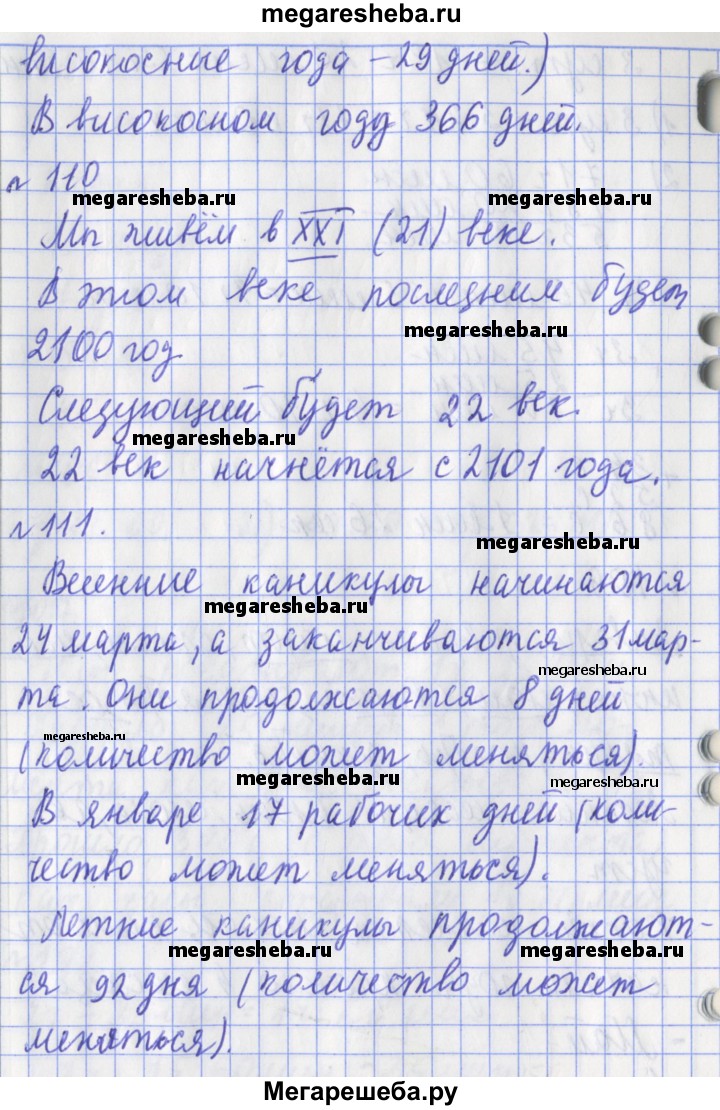 megaresheba.ru
високосные года – 29 дней.)
В високосном году 366 дней.
№ 110
megaresheba.ru megaresheba.ru
Мы живём в XXI (21) веке.
В этом веке последним будет
megaresheba.ru
2100 год
Следующий будет 22 век.
megaresheba.ru
22 век начнётся с 2101 года.
№ 111.
megaresheba.ru
Весенние каникулы начинаются
megaresheba.ru
24 марта, а заканчиваются 31 мар-
megaresheba.ru
та. Они продолжаются 8 дней
megaresheba.ru
(количество может меняться).
megaresheba.ru megaresheba.ru
В январе 17 рабочих дней (коли-
чество может меняться).
Летние каникулы продолжают-
megaresheba.ru megaresheba.ru
ся 92 дня (количество может
меняться).
Мегарешеба.ру